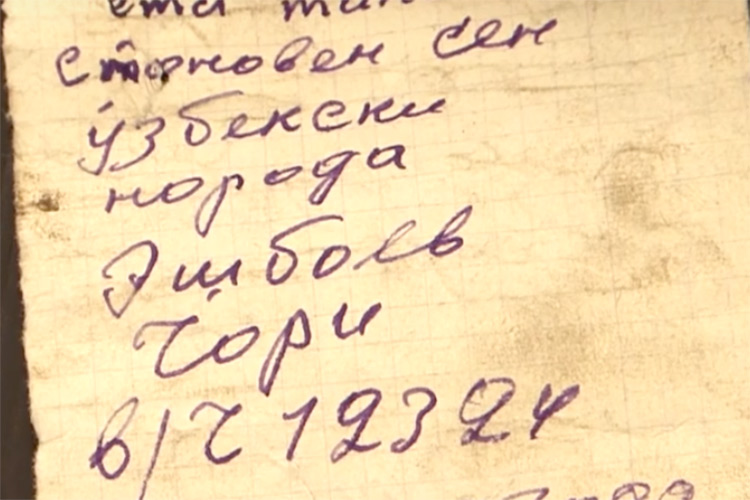 ета тип
становен сен
узбекски
норода
Эшбоев
Чори
в/ч 12324